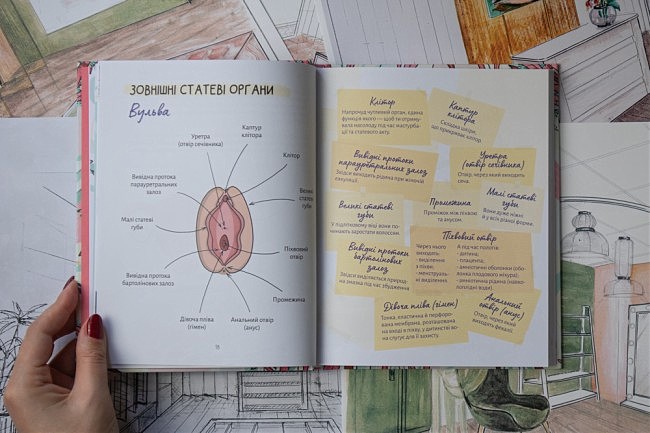 ЗОВНІШНІ СТАТЕВІ ОРГАНИ
Вульва
Каптур
клітора
Уретра
(отвір сечівника)
Клітор
Вивідна протока
парауретральних
залоз
статеві
губи
Малі статеві
губи
Піхвовий
отвір
Вивідна протока
бартолінових залоз
Промежина
Дівоча пліва
(гімен)
Анальний отвір
(анус)
Клітор
Напрочуд чутливий орган, єдина
функція якого — щоб ти отриму-
вала насолоду під час мастурба-
ції та статевого акту.
Каптур
клітора
Складка шкіри,
що прикриває клітор.
Вивідні протоки
парауретральних залоз
Звідси виходить рідина при жіночій
еякуляції.
Уретра
(отвір сечівника)
Отвір, через який виходить
сеча.
Великі статеві
губи
У підлітковому віці вони по-
чинають заростати волоссям.
Промежина
Проміжок між піхвою
та анусом.
Малі статеві
губи
Вони дуже ніжні
й у всіх різної форми.
Вивідні протоки
бартолінових
залоз
Звідси виділяється природ-
на змазка під час збудження
Піхвовий отвір
Через нього
виходять:
- виділення
з піхви;
- менструаль-
ні виділення.
А під час пологів:
- дитина;
- плацента;
- амніотичні оболонки (обо-
лонка плодового міхура);
- амніотична рідина (навко-
лоплідні води).
Дівоча пліва (гімен)
Тонка, еластична й перфоро-
вана мембрана, розташована
на вході в піхву, у дитинстві во-
на слугує для її захисту.
Анальний
отвір (анус)
Отвір, через який
виходять фекалії.